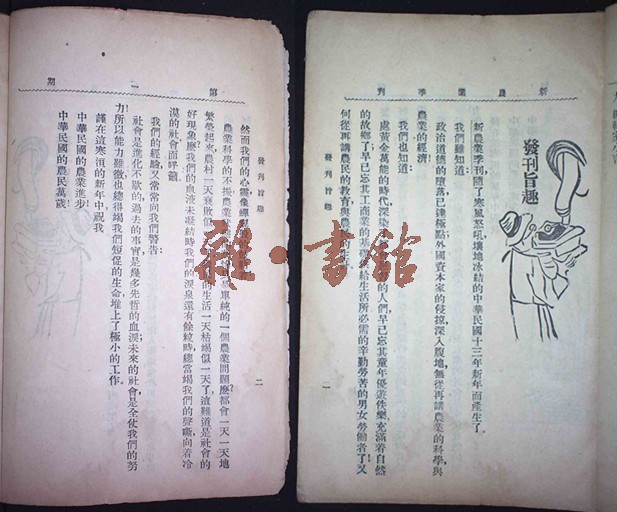 新農業季刊
發刊旨趣
新農業季刊隨了寒風怒吼壤地冰結的中華民國十三年新年而產生了
我們雖知道
政治道德的墮落已達極點外國資本家的侵掠深入腹地無從再講農業的科學與
農業的經濟
我們也知道
處黃金萬能的時代深染 的人們早已忘其童年優遊佚樂充滿着自然
的故鄉了早已忘其工商業的基礎 給生活所必需的辛勤勞苦的男女勞働者了又
何從再講農民的教育與農 的生
發刊旨趣
一
第一期
然而我們的心靈像
農業科學的不振農業 單純的一個農業問題麼都會一天一天地
繁榮起來農村一天衰敗似 的生活一天枯竭似一天了這難道是社會的
好現象麽我們的血液未凝結時我們的淚泉還有餘粒時總當竭我們的聲嘶向着冷
漠的社會而呼號
我們的經驗又常常向我們警告
社會是進化不歇的過去的事實是幾多先哲的血淚未來的社會是全仗我們的努
力所以能力雖微也總得竭我們短促的生命堆上了極小的工作
謹在這寒沍的新年中祝我
中華民國的農業進步
中華民國的農民萬歲
發刊旨趣
二
雅·書館